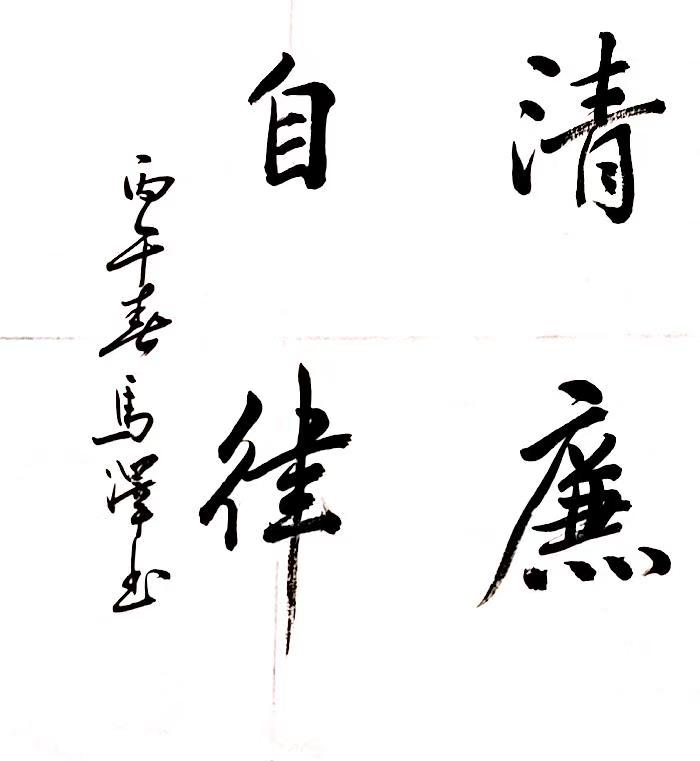 清廉
自律
丙午春馬澤书